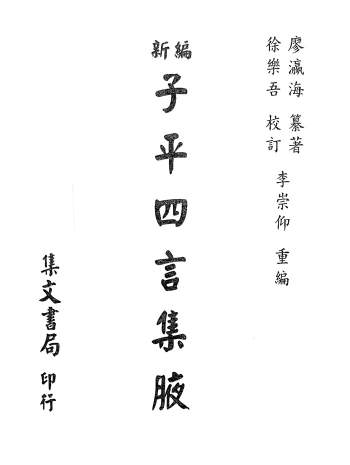 廖瀛海 纂著
徐樂吾 校訂 李崇仰 重編
新編
子平四言集腋
集文書局 印行